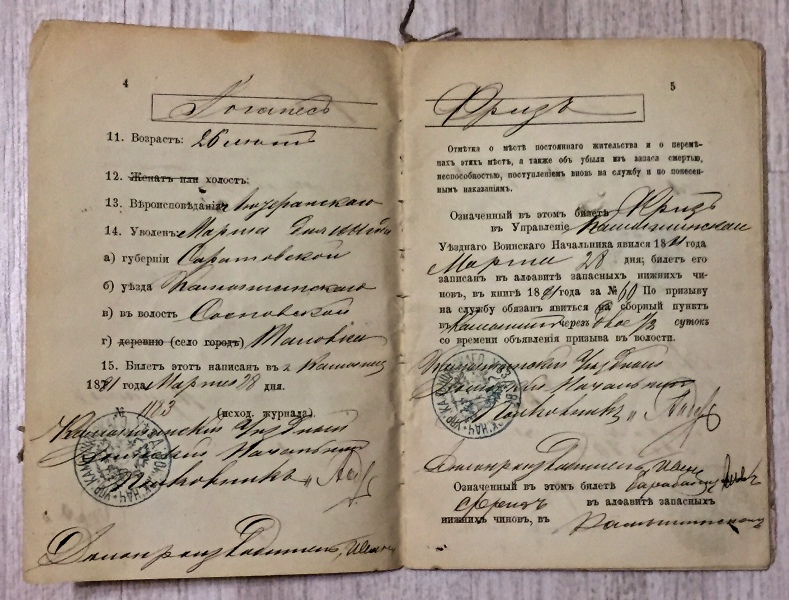 4
Іоганесъ
11. Возрастъ: 26 лѣтъ
12. Женатъ или холостъ:
13. Вѣроисповѣданія
14. Уволенъ: Марта
а) губерніи Саратовской
б) уѣзда Камышинскаго
в) въ волость Сосновской
г) деревню (село городъ)
15. Билетъ этотъ написанъ въ г. Камышинѣ
1881 года Марта 28 дня.
№ 1183 (исход. журнала).
Камышинскій Уѣздный
Воинскій Начальникъ
Полковникъ
Дѣлопроизводитель,
5
Фризъ
Отмѣтка о мѣстѣ постояннаго жительства и о перемѣ-
нахъ этихъ мѣстъ, а также объ убыли изъ запаса смертью,
неспособностью, поступленіемъ вновь на службу и по понесен-
нымъ наказаніямъ.
Означенный въ этомъ билетѣ Фризъ
въ Управленіе Камышинскаго
Уѣзднаго Воинскаго Начальника явился 1881 года
Марта 28 дня; билетъ его
записанъ въ алфавитѣ запасныхъ нижнихъ чи-
новъ, въ книгѣ 1881 года за № 60 По призыву
на службу обязанъ явиться на сборный пунктъ
въ Камышинъ чрезъ двое сутокъ
со времени объявленія призыва въ волости.
Камышинскій Уѣздный
Воинскій Начальникъ
Полковникъ
Дѣлопроизводитель
Означенный въ этомъ билетѣ
Фризъ въ алфавитѣ запасныхъ
нижнихъ чиновъ, въ Камышинскомъ